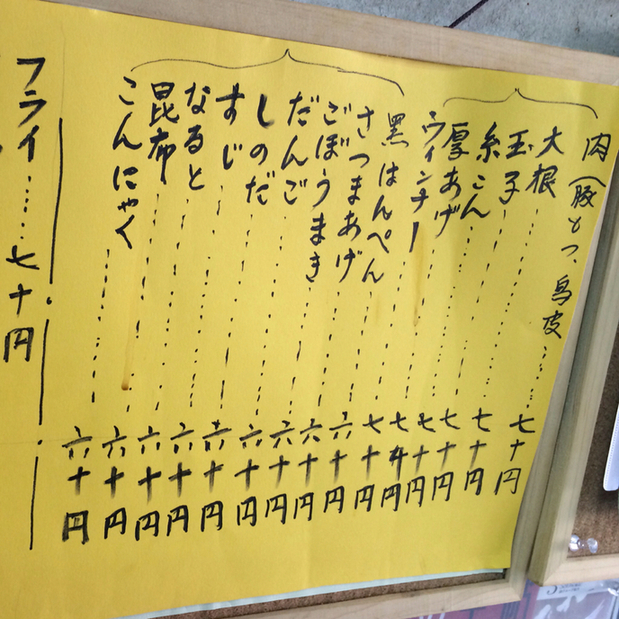 肉(豚もつ、鳥皮……七十円
大根……七十円
玉子……七十円
糸こん……七十円
厚あげ……七十円
ウインナー……七十円
黒はんぺん……六十円
さつまあげ……六十円
ごぼうまき……六十円
だんご……六十円
しのだ……六十円
すじ……六十円
なると……六十円
昆布……六十円
こんにゃく……六十円
フライ……七十円